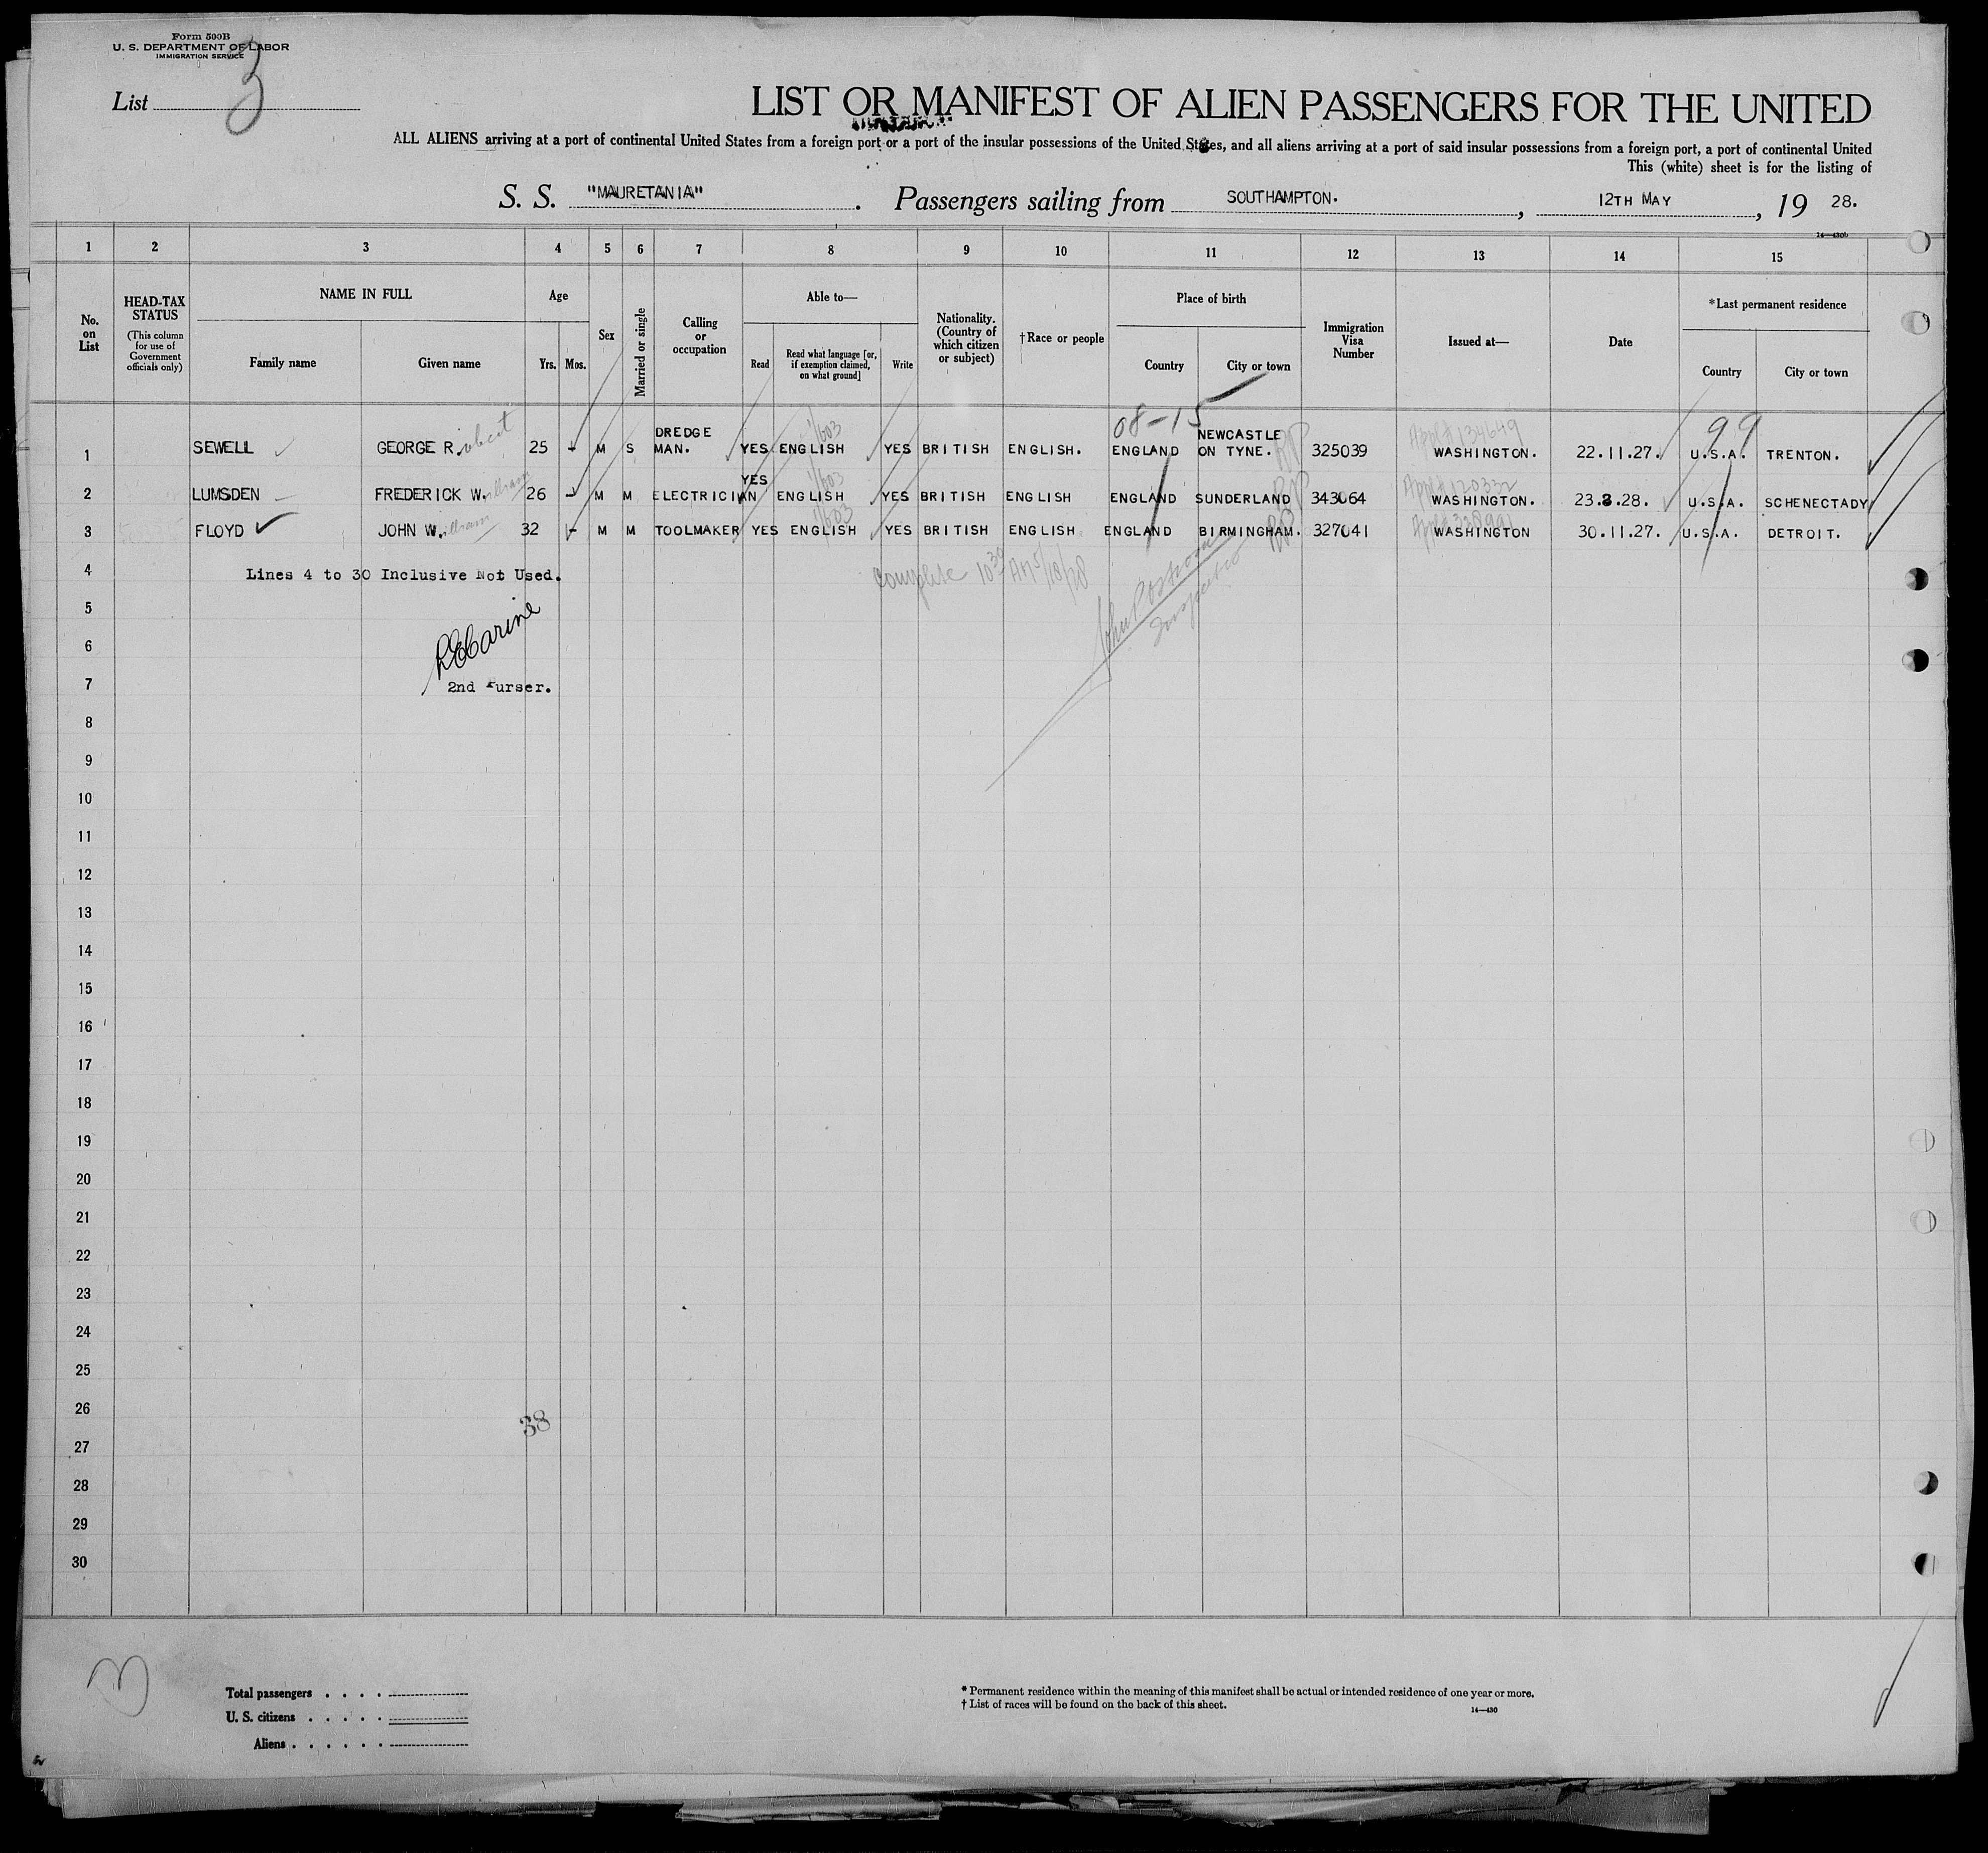 Form 500B
U. S. DEPARTMENT OF LABOR
IMMIGRATION SERVICE
List 3
LIST OR MANIFEST OF ALIEN PASSENGERS FOR THE UNITED
ALL ALIENS arriving at a port of continental United States from a foreign port or a port of the insular possessions of the United States, and all aliens arriving at a port of said insular possessions from a foreign port, a port of continental United
This (white) sheet is for the listing of
S. S. "MAURETANIA". Passengers sailing from SOUTHAMPTON. , 12TH MAY , 19 28.
1 2 3 4 5 6 7 8 9 10 11 12 13 14 15
No. on List
HEAD-TAX STATUS
(This column for use of Government officials only)
NAME IN FULL
Family name Given name
Age
Yrs. Mos.
Sex
Married or single
Calling or occupation
Able to—
Read Read what language [or, if exemption claimed, on what ground] Write
Nationality. (Country of which citizen or subject)
† Race or people
Place of birth
Country City or town
Immigration Visa Number
Issued at—
Date
* Last permanent residence
Country City or town
08-15 99
1 SEWELL GEORGE R. obert 25 - M S DREDGE MAN. YES ENGLISH YES BRITISH ENGLISH. ENGLAND NEWCASTLE ON TYNE. 325039 WASHINGTON. 22.11.27. U.S.A. TRENTON.
2 LUMSDEN FREDERICK W. illiam 26 - M M ELECTRICIAN YES ENGLISH YES BRITISH ENGLISH ENGLAND SUNDERLAND 343064 WASHINGTON. 23.3.28. U.S.A. SCHENECTADY
3 FLOYD JOHN W. illiam 32 - M M TOOLMAKER YES ENGLISH YES BRITISH ENGLISH ENGLAND BIRMINGHAM. 327041 WASHINGTON 30.11.27. U.S.A. DETROIT.
4 Lines 4 to 30 Inclusive Not Used.
Complete 10 30 AM 5/18/28
Inspector
5
6
7 2nd Purser.
8
9
10
11
12
13
14
15
16
17
18
19
20
21
22
23
24
25
26
38
27
28
29
30
3
Total passengers . . . .
U. S. citizens . . . . .
Aliens . . . . . .
* Permanent residence within the meaning of this manifest shall be actual or intended residence of one year or more.
† List of races will be found on the back of this sheet.
14—430